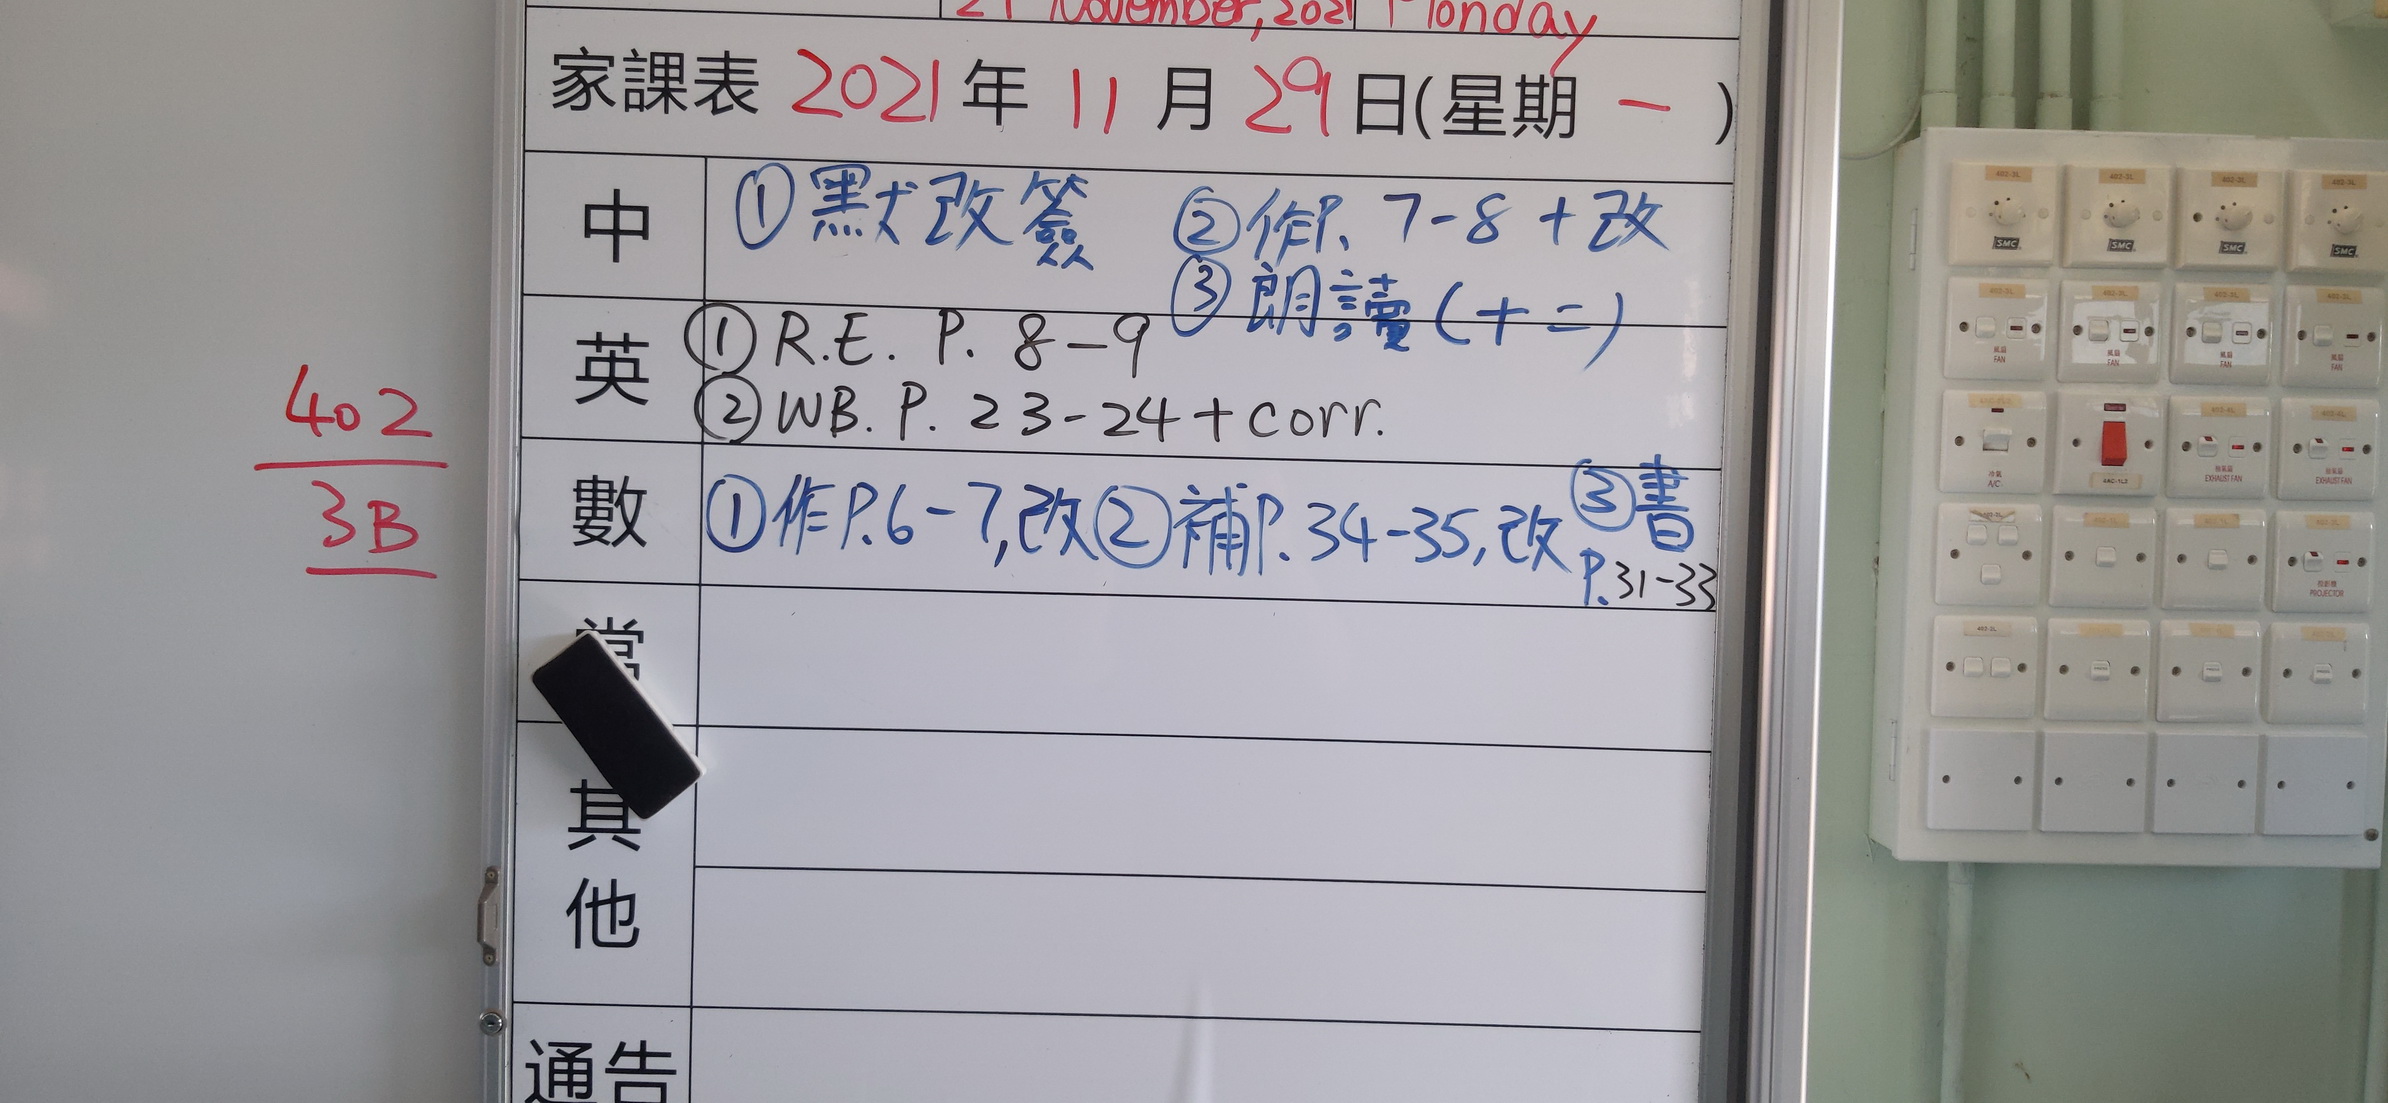 29 November, 2021 Monday
家課表 2021年 11月 29日(星期 一 )
中 ①默改簽 ②作P. 7-8 +改
③朗讀(十二)
英 ①R.E. P. 8-9
②WB. P. 23-24 + corr.
數 ①作P.6-7,改②補P.34-35,改 ③書
P.31-33
常
其
他
通告
402
3B
402-3L 402-3L 402-3L 402-3L
SMC SMC SMC SMC
402-3L 402-3L 402-3L 402-3L
風扇 風扇 風扇 風扇
FAN FAN FAN FAN
冷氣
A/C
4AC-1L2
抽氣扇 抽氣扇
EXHAUST FAN EXHAUST FAN
投影機
PROJECTOR
402-2L